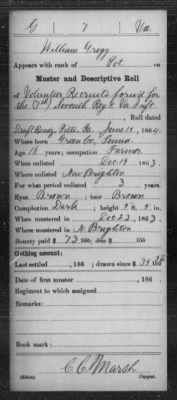 G 7 Va.
William Gregg
Appears with rank of Pvt. on
Muster and Descriptive Roll
of Volunteer Recruits forwd for
the (7th) Seventh Regt. Va. Inft.
Roll dated
Draft Rendz. Pitts. Pa. June 15, 1864.
Where born Green Co. Penna.
Age 18 years; occupation Farmer
When enlisted Dec. 19, 1863.
Where enlisted New Brighton
For what period enlisted 3 years.
Eyes Brown; hair Brown
Complexion Dark; height
When mustered in Dec 22, 1863.
Where mustered in N. Brighton
Bounty paid $ 73 100; due $ 100
Clothing account:
Last settled , 186 ; drawn since $ 35
Date of first muster , 186 .
Regiment to which assigned
Remarks:
Book mark:
C C Marsh
Copyist.